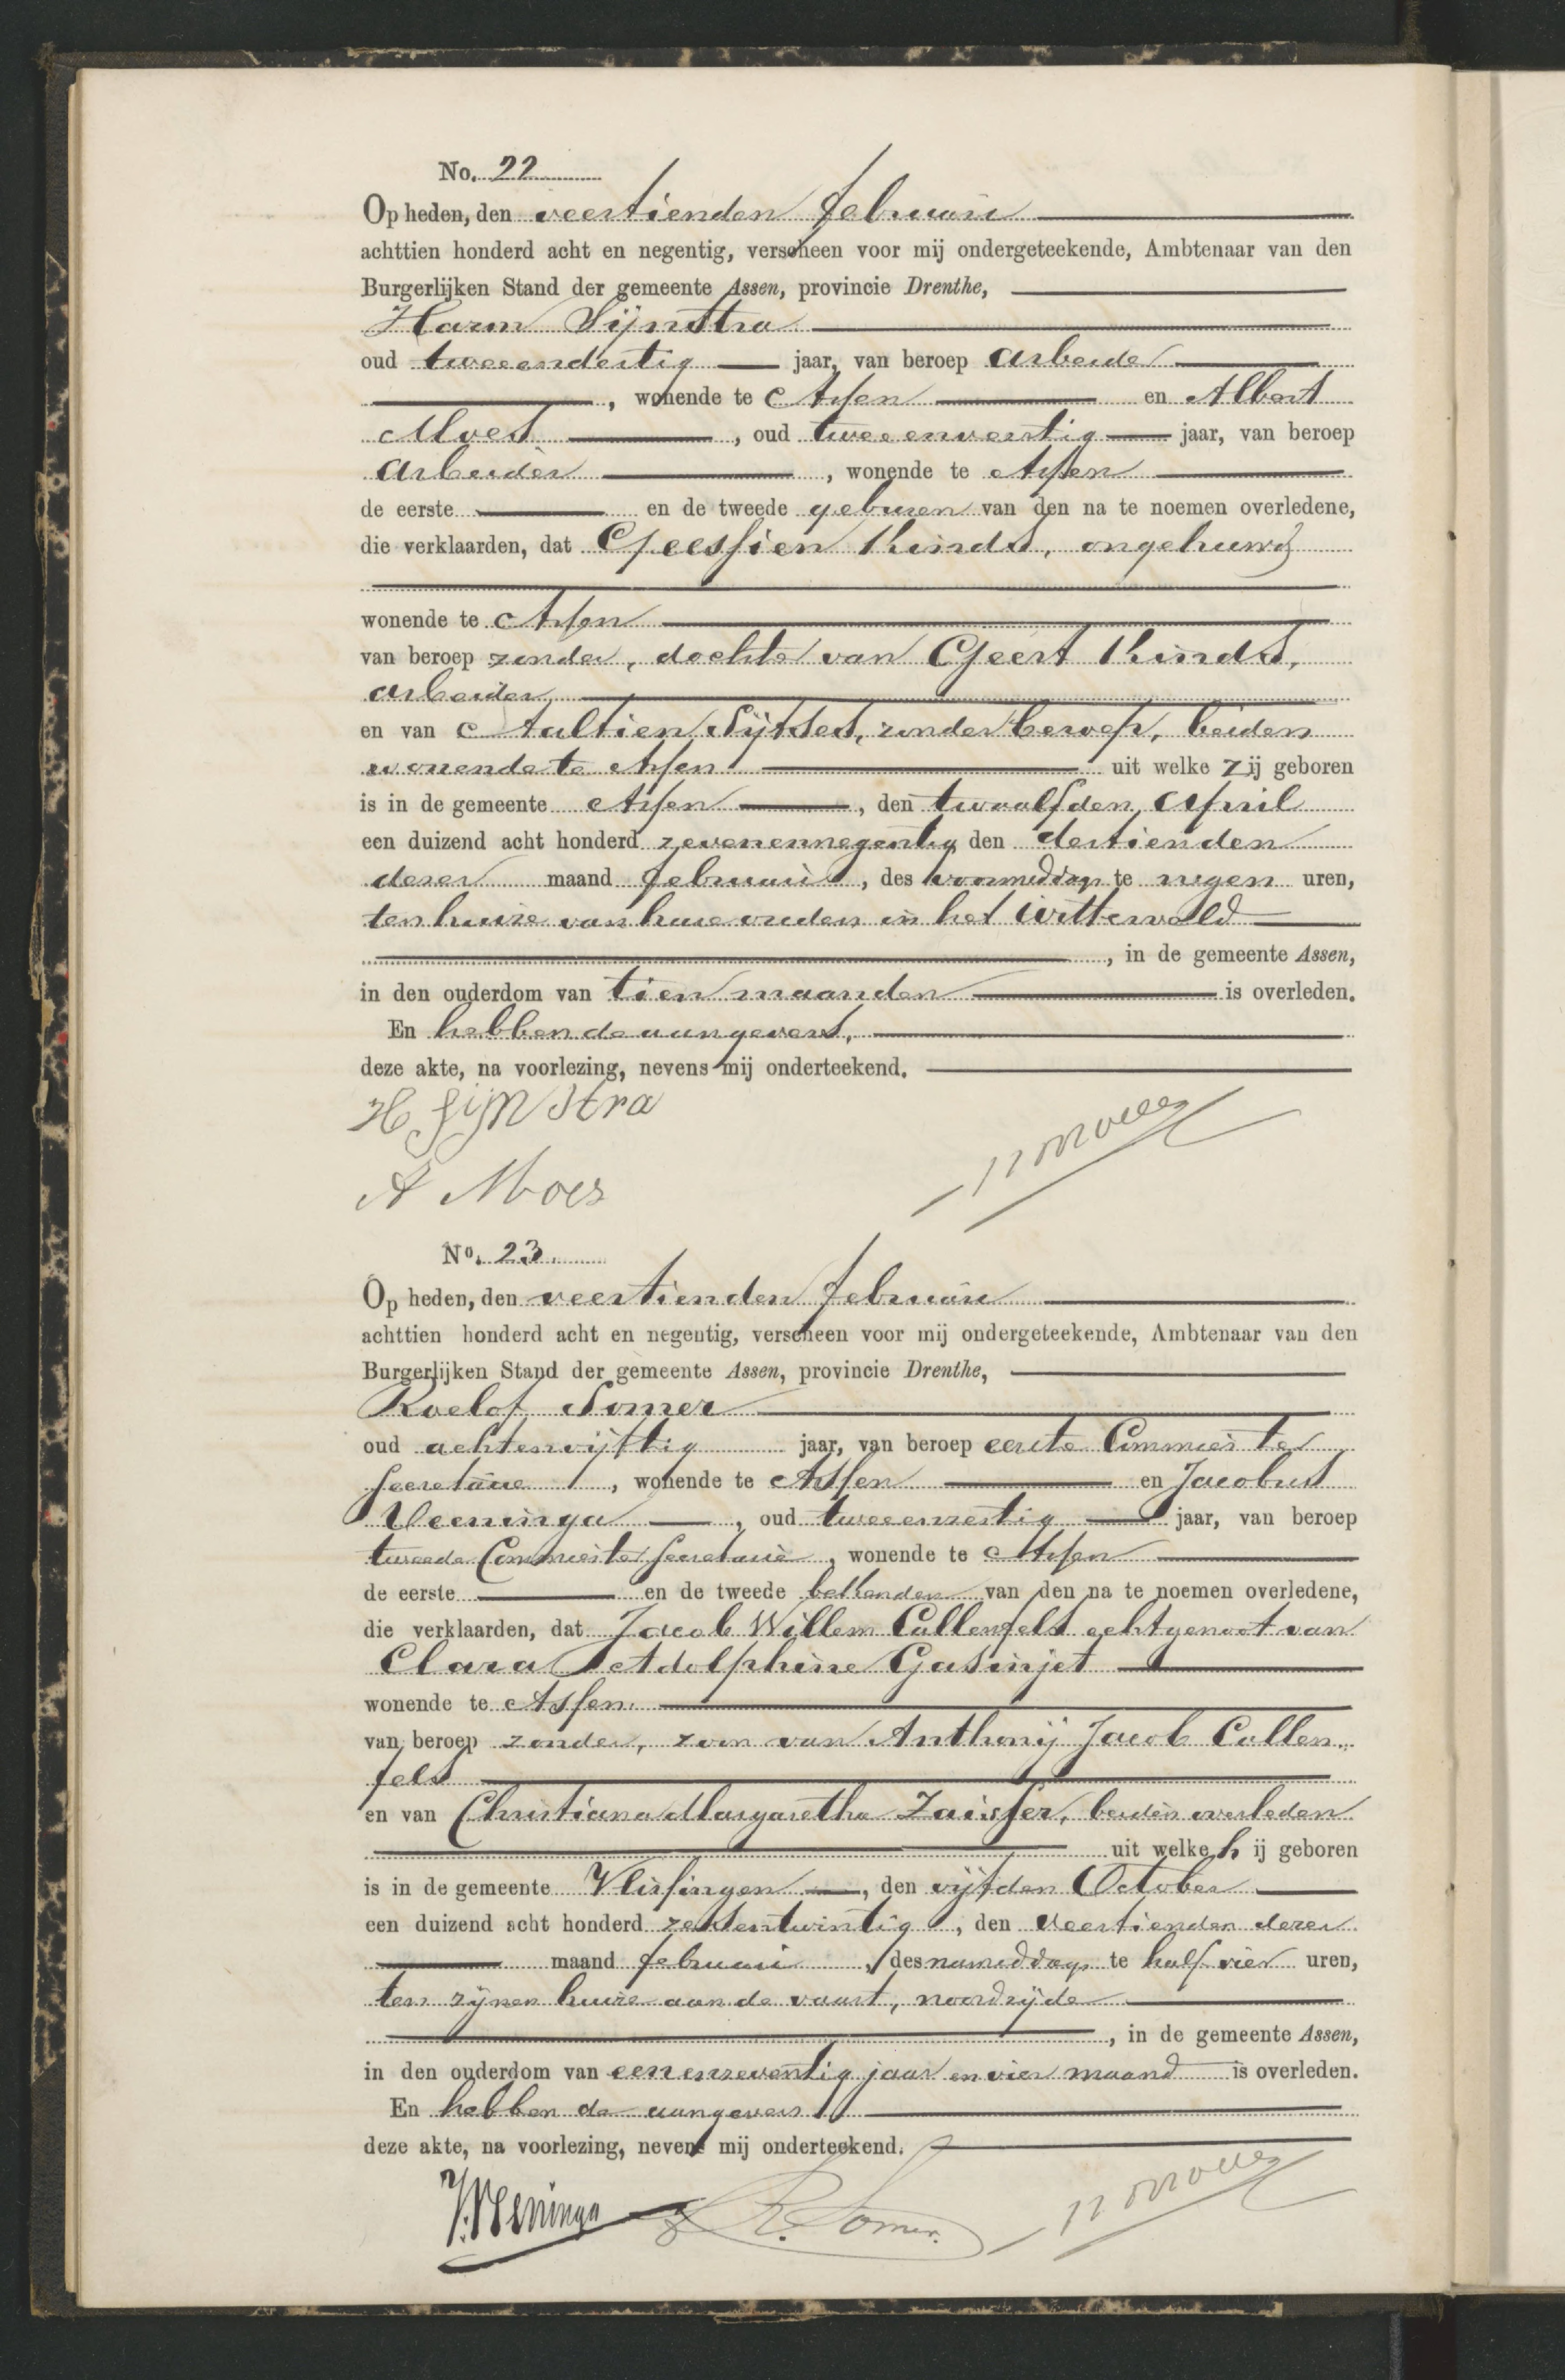 No. 22
Op heden, den veertienden februari
achttien honderd acht en negentig, verscheen voor mij ondergeteekende, Ambtenaar van den
Burgerlijken Stand der gemeente Assen, provincie Drenthe,
Harm Sijnstra
oud tweeendertig jaar, van beroep arbeider
, wonende te Assen en Albert
Moes , oud tweeenveertig jaar, van beroep
arbeider , wonende te Assen
de eerste en de tweede geburen van den na te noemen overledene,
die verklaarden, dat Geessien Kunds, ongehuwd
wonende te Assen
van beroep zonder, dochter van Geert Kunds,
arbeider
en van Aaltien Sijtses, zonder beroep, beiden
wonende te Assen uit welke zij geboren
is in de gemeente Assen , den twaalfden April
een duizend acht honderd zevenennegentig den dertienden
dezer maand februari , des voormiddags te negen uren,
ten huize van hare ouders in het Witterveld
, in de gemeente Assen,
in den ouderdom van tien maanden is overleden.
En hebben de aangevers,
deze akte, na voorlezing, nevens mij onderteekend.
H Sijnstra
A Moes
No. 23.
Op heden, den veertienden februari
achttien honderd acht en negentig, verscheen voor mij ondergeteekende, Ambtenaar van den
Burgerlijken Stand der gemeente Assen, provincie Drenthe,
Roelof Somer
oud achtenvijftig jaar, van beroep eerste Commies ter
secretarie , wonende te Assen en Jacobus
Veeninga , oud tweeenzestig jaar, van beroep
tweede Commies ter secretarie , wonende te Assen
de eerste en de tweede bekenden van den na te noemen overledene,
die verklaarden, dat Jacob Willem Callenfels echtgenoot van
Clara Adolphine Gasinjet
wonende te Assen.
van beroep zonder, zoon van Anthonij Jacob Callen-
fels
en van Christiana Margaretha Zaisser, beiden overleden
uit welke hij geboren
is in de gemeente Vlissingen , den vijfden October
een duizend acht honderd zesentwintig , den veertienden dezer
maand februari , des namiddags te half vier uren,
ten zijnen huize aan de vaart, noordzijde
, in de gemeente Assen,
in den ouderdom van eenenzeventig jaar en vier maand is overleden.
En hebben de aangevers
deze akte, na voorlezing, nevens mij onderteekend.
J. Veeninga R. Somer.